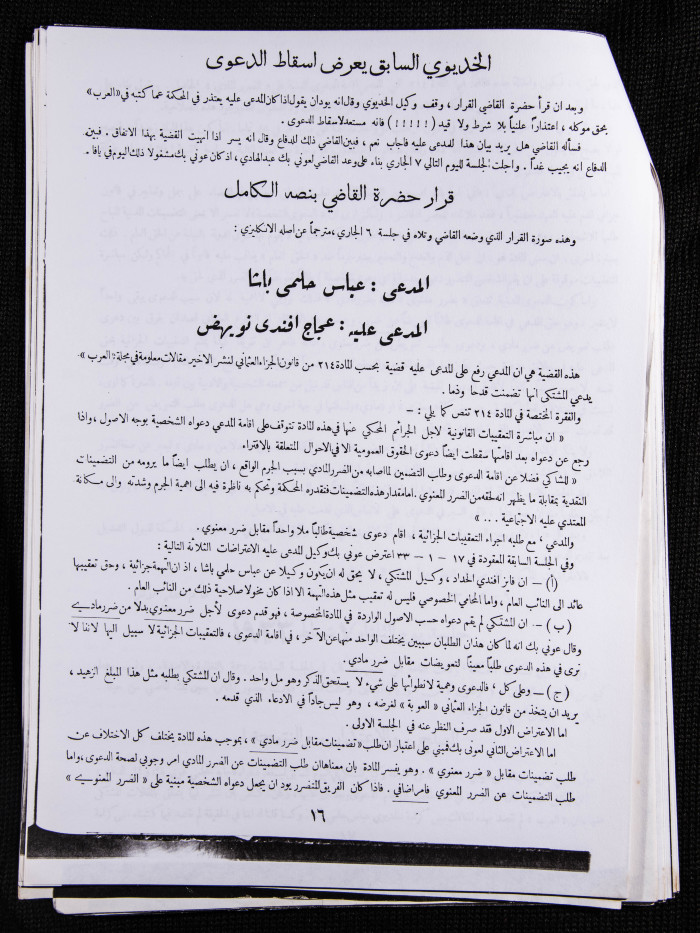 الخديوي السابق يعرض اسقاط الدعوى
وبعد ان قرأ حضرة القاضي القرار ، وقف وكيل الخديوي وقال انه يود ان يقول اذا كان المدعى عليه يعتذر في المحكمة عما كتبه في «العرب»
بحق موكله ، اعتذاراً علنياً بلا شرط ولا قيد (!!!!!) فانه مستعد لاسقاط الدعوى .
فسأله القاضي هل يريد بيان هذا للمدعى عليه فاجاب نعم ، فبين القاضي ذلك للدفاع وقال انه يسر اذا انتهت القضية بهذا الاتفاق . فبين
الدفاع انه يجيب غداً . واجلت الجلسة لليوم التالي ٧ الجاري بناء على وعد القاضي لعوني بك عبد الهادي ، اذ كان عوني بك مشغولا ذلك اليوم في يافا .
قرار حضرة القاضي بنصه الكامل
وهذه صورة القرار الذي وضعه القاضي وتلاه في جلسة ٦ الجاري ، مترجماً عن اصله الانكليزي :
المدعى : عباس حلمى باشا
المدعى عليه : عجاج افندى نويهض
هذه القضية هي ان المدعي رفع على المدعى عليه قضية بحسب المادة ٢١٤ من قانون الجزاء العثماني لنشر الاخير مقالات معلومة في مجلة «العرب»
يدعي المشتكى انها تضمنت قدحاً وذما .
والفقرة المختصة في المادة ٢١٤ تنص كما يلي : —
« ان مباشرة التعقيبات القانونية لاجل الجرائم المحكي عنها في هذه المادة تتوقف على اقامة المدعي دعواه الشخصية بوجه الاصول ، واذا
رجع عن دعواه بعد اقامتها سقطت ايضاً دعوى الحقوق العمومية الا في الاحوال المتعلقة بالافتراء.
« للشاكي فضلا عن اقامة الدعوى وطلب التضمين لما اصابه من الضرر المادي بسبب الجرم الواقع ، ان يطلب ايضاً ما يرومه من التضمينات
النقدية بمقابلة ما يظهر انه لحقه من الضرر المعنوي . اما مقدار هذه التضمينات فتقدره المحكمة وتحكم به ناظرة فيه الى اهمية الجرم وشدته والى مكانة
المعتدي عليه الاجتماعية . .. »
والمدعي ، مع طلبه اجراء التعقيبات الجزائية ، اقام دعوى شخصية طالباً ملا واحداً مقابل ضرر معنوي .
وفي الجلسة السابقة المعقودة في ١٧ - ١ - ٣٣ اعترض عوني بك وكيل المدعى عليه الاعتراضات الثلاثة التالية :
(أ) — ان فايز افندي الحداد ، وكيل المشتكي ، لا يحق له ان يكون وكيلا عن عباس حلمي باشا ، اذ ان التهمة جزائية ، وحق تعقيبها
عائد الى النائب العام ، واما المحامي الخصوصي فليس له تعقيب مثل هذه التهمة الا اذا كان مخولا صلاحية ذلك من النائب العام .
(ب) — ان المشتكي لم يقم دعواه حسب الاصول الواردة في المادة المخصوصة ، فهو قدم دعوى لأجل ضرر معنوي بدلا من ضرر مادي
وقال عوني بك انه لما كان هذان الطلبان سببين يختلف الواحد منهما عن الآخر ، في اقامة الدعوى ، فالتعقيبات الجزائية لا سبيل اليها لاننا لا
نرى في هذه الدعوى طلباً معيناً لتعويضات مقابل ضرر مادي.
(ج) — وعلى كل ، فالدعوى وهمية لانطوائها على شيء لا يستحق الذكر وهو مل واحد . وقال ان المشتكي بطلبه مثل هذا المبلغ الزهيد ،
يريد ان يتخذ من قانون الجزاء العثماني « العوبة » لغرضه ، وهو ليس جاداً في الادعاء الذي قدمه .
اما الاعتراض الاول فقد صرف النظر عنه في الجلسة الاولى .
اما الاعتراض الثاني لعوني بك فمبني على اعتبار ان طلب « تضمينات مقابل ضرر مادي » ، بموجب هذه المادة يختلف كل الاختلاف عن
طلب تضمينات مقابل « ضرر معنوي » . وهو يفسر المادة بان معناها ان طلب التضمينات عن الضرر المادي امر وجوبي لصحة الدعوى ، واما
طلب التضمينات عن الضرر المعنوي فامر اضافي . فاذا كان الفريق المتضرر يود ان يجعل دعواه الشخصية مبنية على « الضرر المعنوي »
١٦